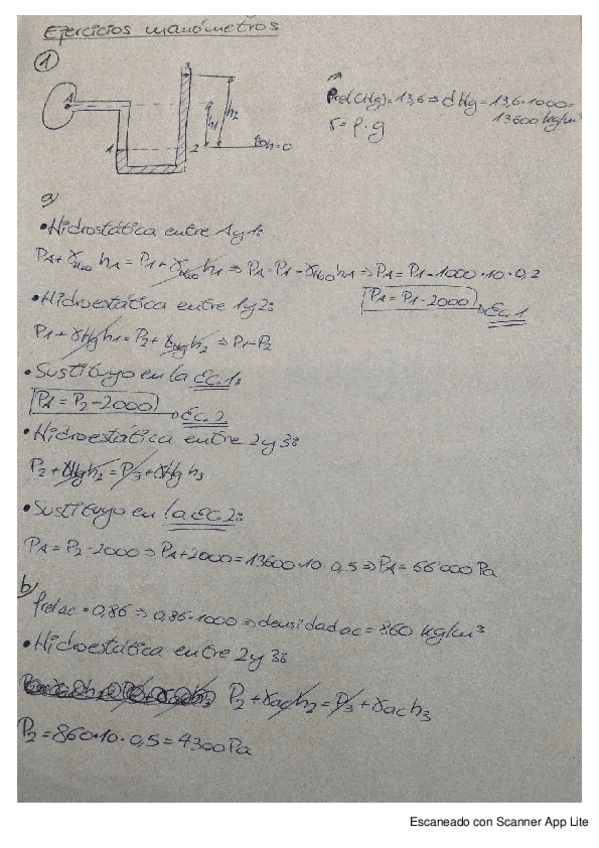 Ejercicios manómetros
1
A
3
h1
h2
1
2
h=0
ρrel(Hg)=13,6 ⇒ dHg = 13,6·1000=
13600 kg/m³
γ=ρ·g
a)
•Hidrostática entre A y 1:
PA+γH2O hA = P1+γH2O h1 ⇒ PA=P1-γH2O hA ⇒ PA=P1-1000·10·0,2
PA=P1-2000 Ec.1
•Hidroestática entre 1y2:
P1+γHg h1=P2+γHg h2 ⇒ P1=P2
•Sustituyo en la EC.1:
PA=P2-2000 EC.2
•Hidroestática entre 2 y 3:
P2+γHg h2=P3+γHg h3
•Sustituyo en la EC.2:
PA=P2-2000 ⇒ PA+2000=13600·10·0,5 ⇒ PA=66000Pa
b)
ρrelac=0,86 ⇒ 0,86·1000 ⇒ densidadac=860 kg/m³
•Hidroestática entre 2 y 3:
P2+γac h2=P3+γac h3
P2=860·10·0,5=4300Pa
Escaneado con Scanner App Lite